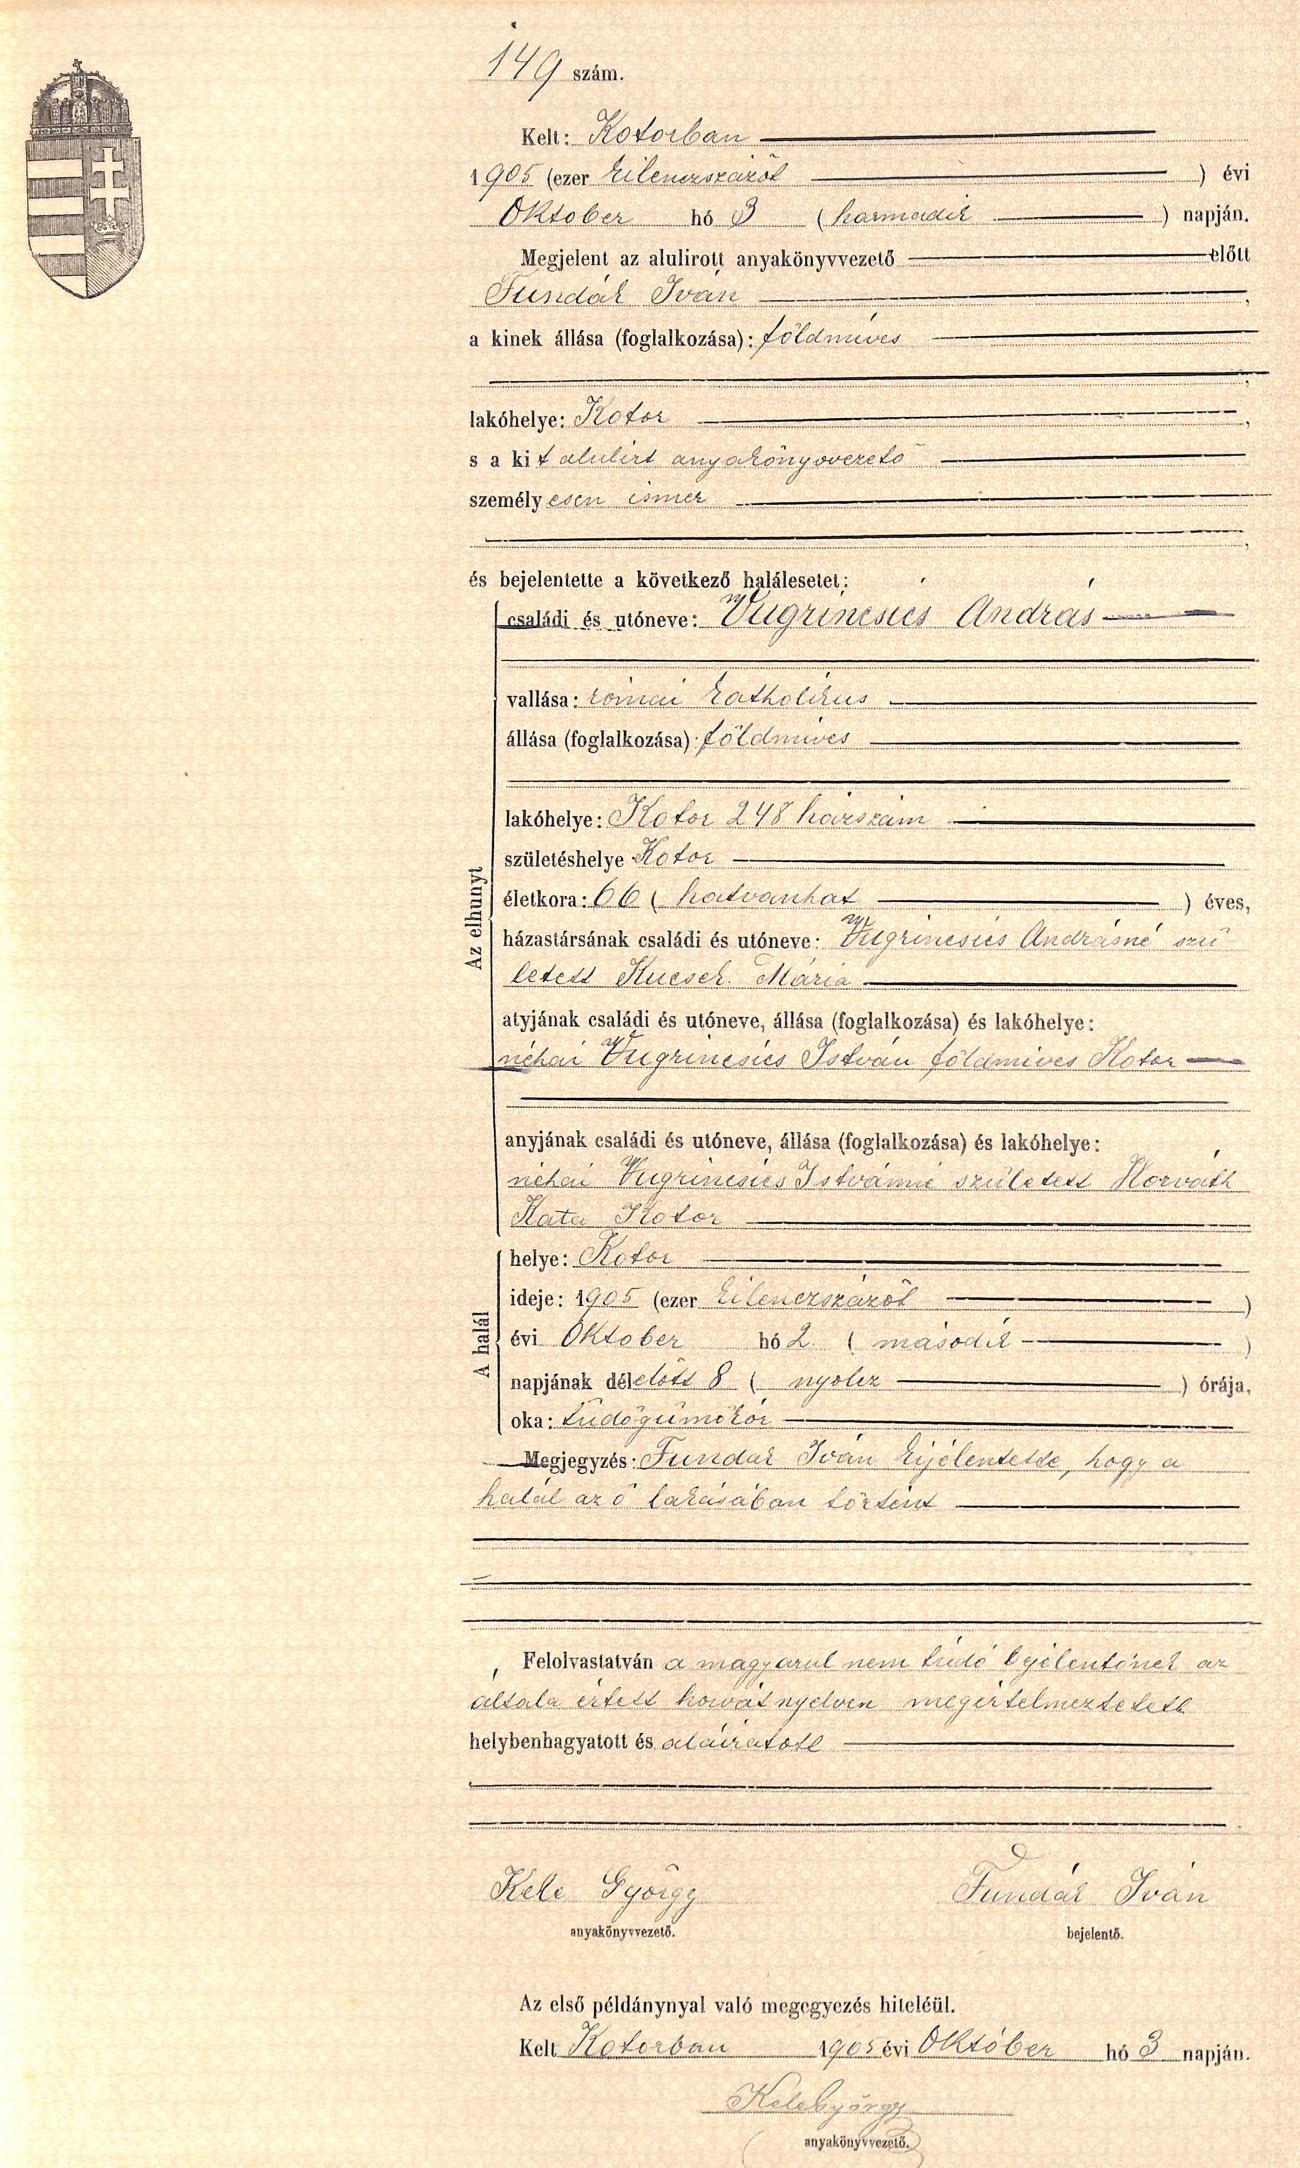 149 szám.
Kelt: Kotorban
1905 (ezer kilenczszázöt ) évi
Oktober hó 3 (harmadik ) napján.
Megjelent az alulirott anyakönyvvezető előtt
Fundák Iván ,
a kinek állása (foglalkozása): földmíves
,
lakóhelye: Kotor ,
s a kit alulírt anyakönyvvezető
személyesen ismer
,
és bejelentette a következő halálesetet:
Az elhunyt
családi és utóneve: Vugrincsics András
vallása: római katholikus
állása (foglalkozása): földmíves
lakóhelye: Kotor 248 házszám
születéshelye Kotor
életkora: 66 ( hatvanhat ) éves,
házastársának családi és utóneve: Vugrincsics Andrásné szü
letett Kucsek Mária
atyjának családi és utóneve, állása (foglalkozása) és lakóhelye:
néhai Vugrincsics István földmíves Kotor
anyjának családi és utóneve, állása (foglalkozása) és lakóhelye:
néhai Vugrincsics Istvánné született Horváth
Kata Kotor
A halál
helye: Kotor
ideje: 1905 (ezer kilenczszázöt )
évi Oktober hó 2. ( második )
napjának délelőtt 8 ( nyolcz ) órája,
oka: tüdőgümőkór
Megjegyzés: Fundak Iván kijelentette, hogy a
halál az ő lakásában történt
Felolvastatván a magyarul nem túdó bejelentőnek az
általa értett horvát nyelven megértelmeztetett
helybenhagyatott és aláíratott
Kele György Fundák Iván
anyakönyvvezető. bejelentő.
Az első példánynyal való megegyezés hiteléül.
Kelt Kotorban 1905 évi Október hó 3 napján.
Kele György
anyakönyvvezető.